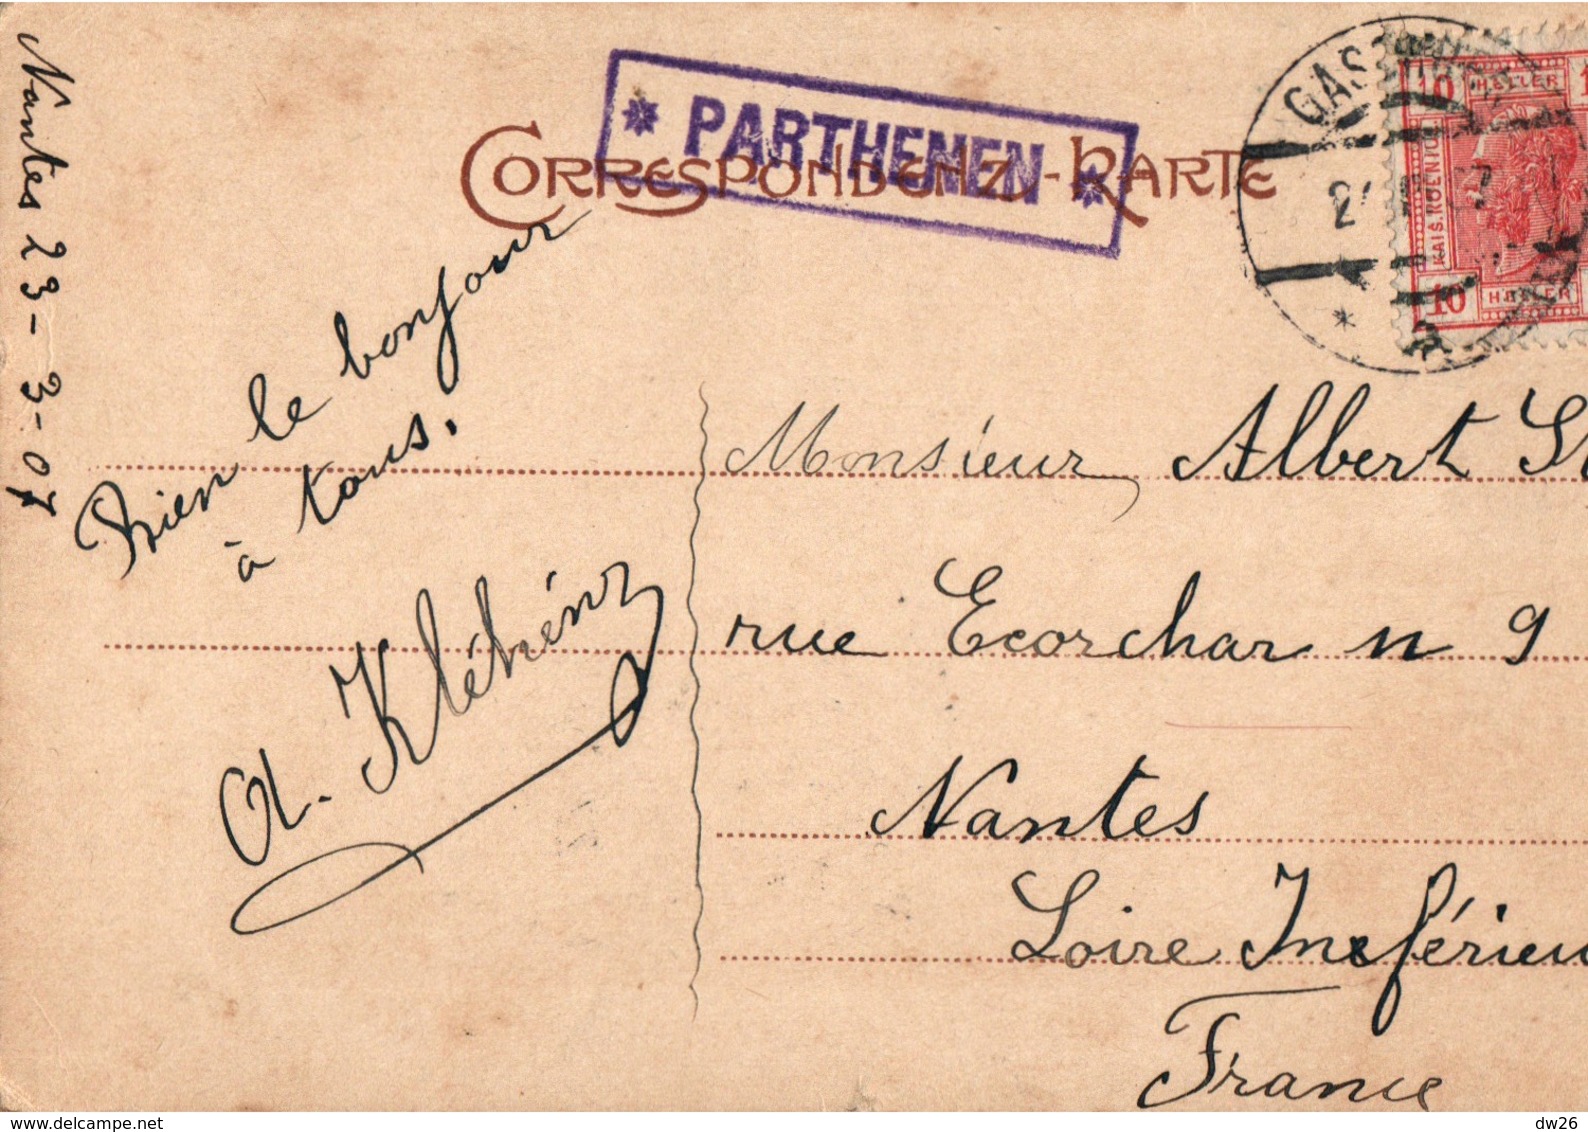 PARTHENEN
CORRESPONDENZ-KARTE
10 HELLER
KAIS. KOENIG
10 HELLER
Nantes 23-3-07
Bien le bonjour
à tous.
Monsieur Albert
rue Ecorchar n 9
Nantes
Loire Inférieu
France
www.delcampe.net
dw26